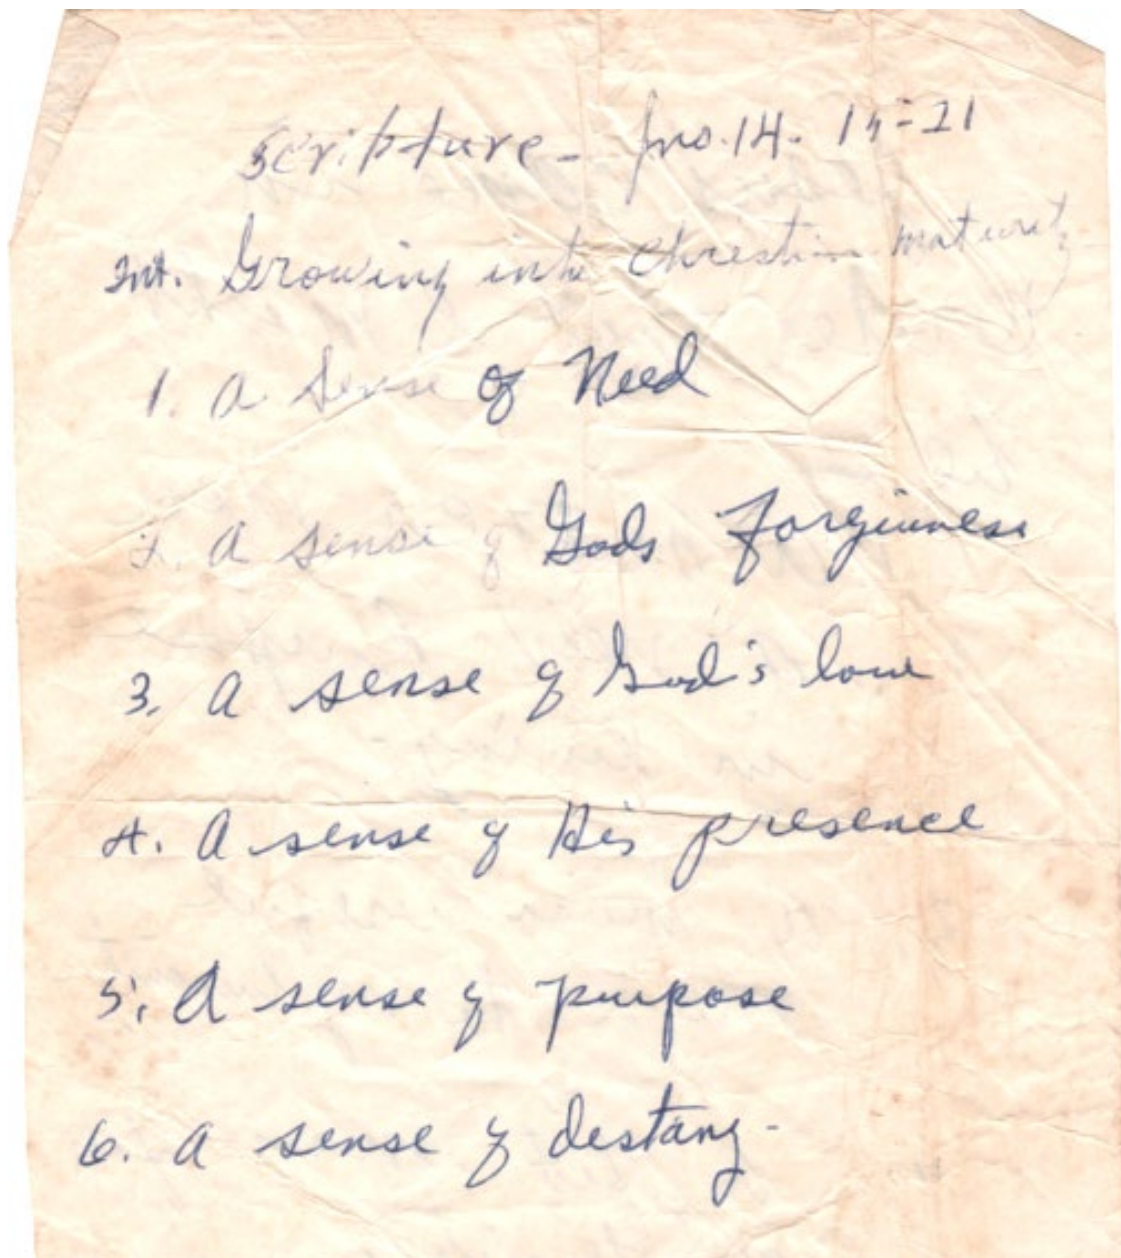 Scripture - Jno. 14. 15=21
Int. Growing into Christian maturity
1. A Sense of Need
2. A sense of Gods forgiveness
3. A sense of God's love
4. A sense of His presence
5. A sense of purpose
6. A sense of destany-